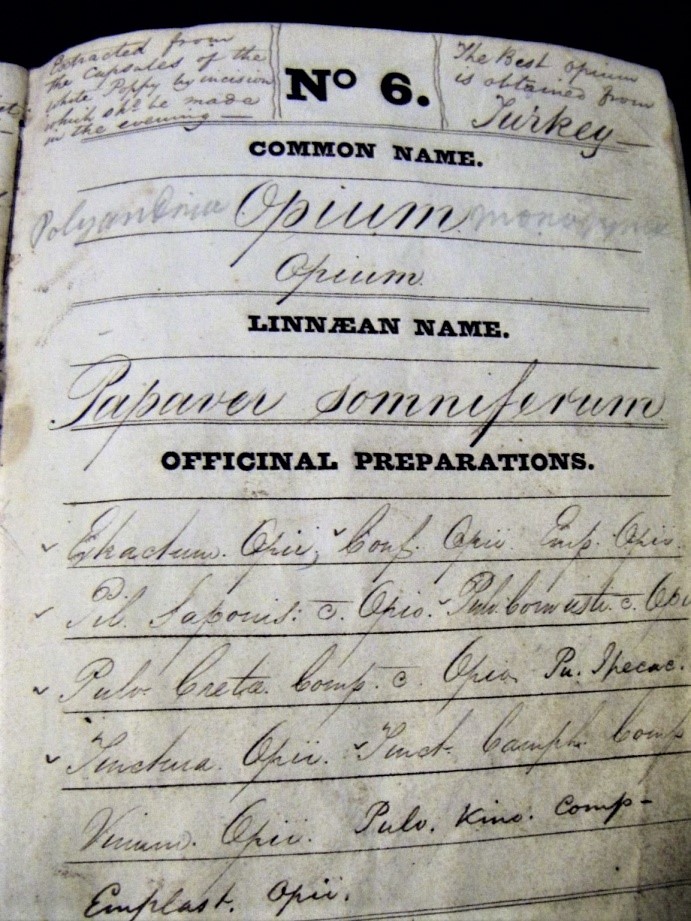 Extracted from
the Capsules of the
white Poppy by incision
which shd be made
in the evening —
No 6.
The Best Opium
is obtained from
Turkey —
COMMON NAME.
Polyandria Opium monogynia
Opium
LINNÆAN NAME.
Papaver somniferum
OFFICINAL PREPARATIONS.
Extractum. Opii, Conf. Opii. Emp. Opii.
Pil. Saponis. c. Opio. Pulv. Cornu ust. c. Opi
Pulv. Creta. Comp. c. Opio. Pu. Ipecac.
Tinctura. Opii. Tinct. Camph. Comp
Vinum. Opii. Pulv. Kino. Comp-
Emplast. Opii.